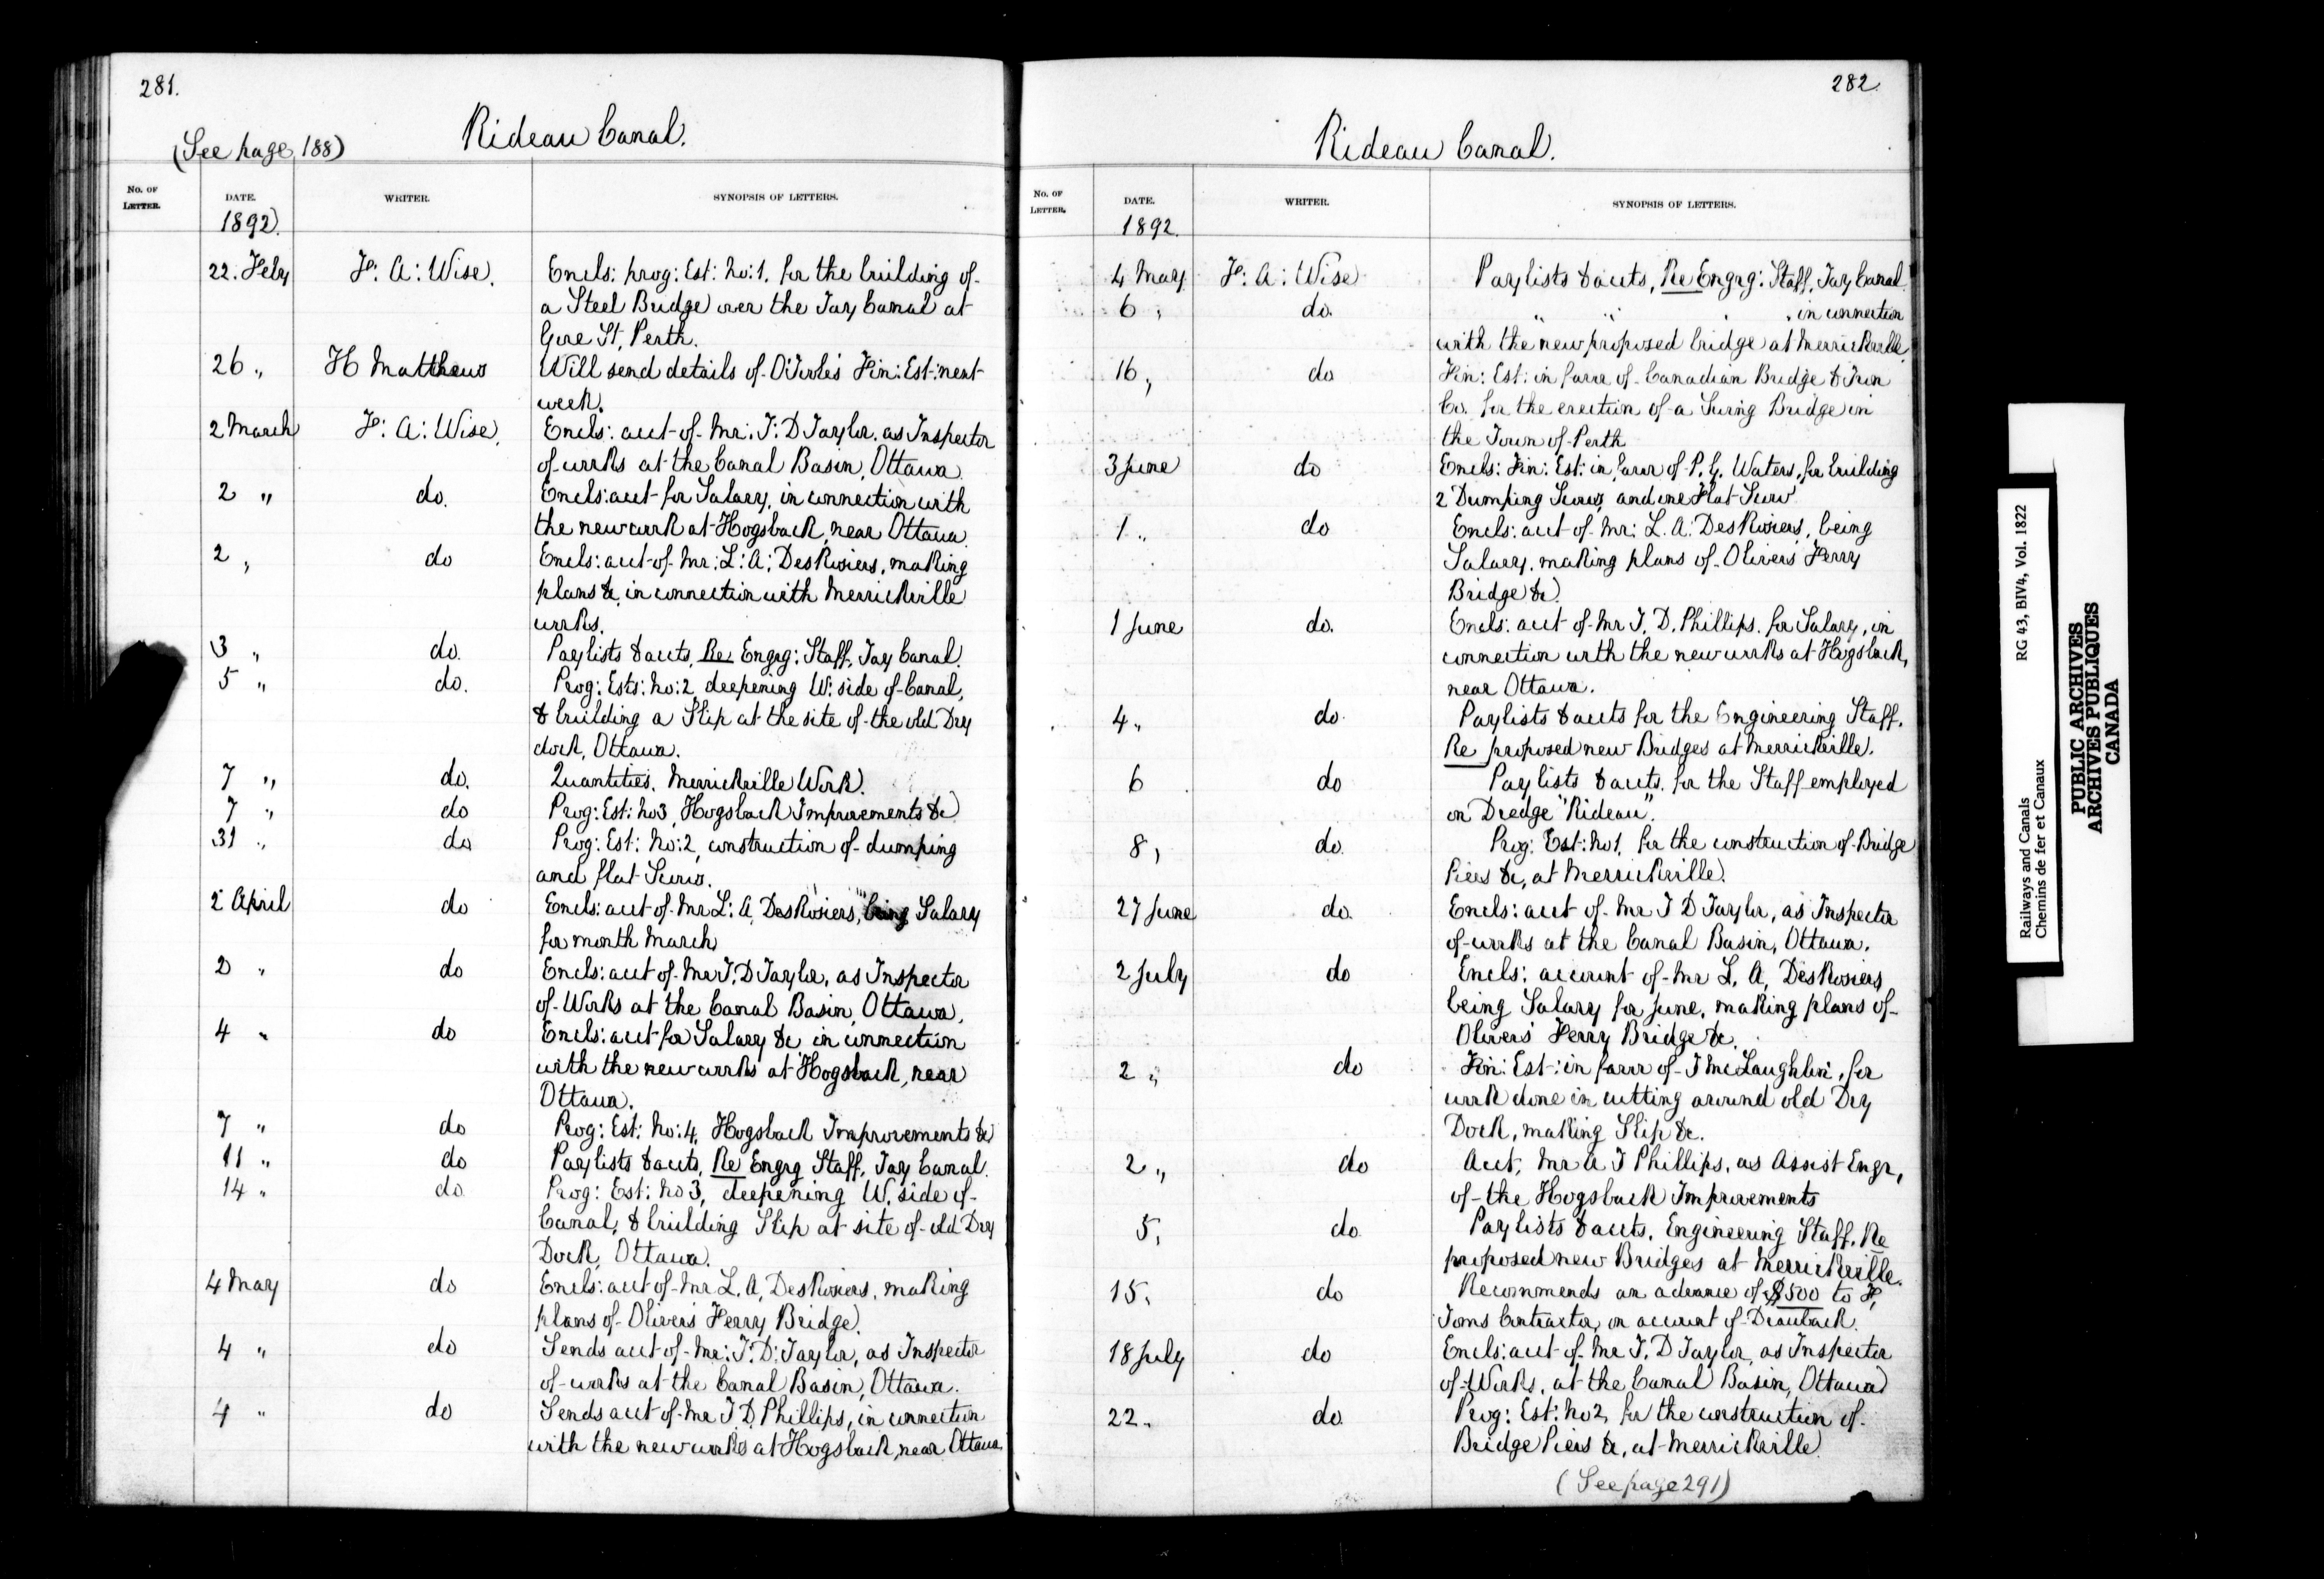 281.
(See page 188)
Rideau Canal.
No. OF LETTER.
DATE.
WRITER.
SYNOPSIS OF LETTERS.
1892.
22. Feby F: A: Wise. Encls: prog: Est: No: 1. for the building of
a Steel Bridge over the Tay Canal at
Gore St, Perth.
26 " H Matthews Will send details of O'Toole's Fin: Est: next
week.
2 March F: A: Wise. Encls: acct of Mr: J: D Taylor, as Inspector
of works at the Canal Basin, Ottawa
2 " do. Encls: acct for Salary, in connection with
the new work at Hogsback, near Ottawa
2 " do Encls: acct of Mr: L: A: DesRosiers, making
plans &c, in connection with Merrickville
works.
3 " do. Paylists & accts, Re Engrg: Staff, Tay Canal.
5 " do. Prog: Ests: No: 2, deepening W: side of Canal,
& building a Slip at the site of the old Dry
dock, Ottawa.
7 " do. Quantities, Merrickville Work.
7 " do Prog: Est: No 3, Hogsback Improvements &c
31 " do Prog: Est: No: 2, construction of dumping
and flat Scows.
2 April do Encls: acct of Mr L: A, DesRosiers, being Salary
for month March
2 " do Encls: acct of Mr J. D Taylor, as Inspector
of Works at the Canal Basin, Ottawa.
4 " do Encls: acct for Salary &c in connection
with the new works at Hogsback, near
Ottawa.
7 " do Prog: Est: No: 4, Hogsback Improvements &c
11 " do Paylists & accts, Re Engrg Staff, Tay Canal.
14 " do Prog: Est: No 3, deepening W. side of
Canal, & building Slip at site of old Dry
Dock, Ottawa.
4 May do Encls: acct of Mr L. A, DesRosiers, making
plans of Olivers Ferry Bridge.
4 " do Sends acct of Mr: J: D: Taylor, as Inspector
of works at the Canal Basin, Ottawa.
4 " do Sends acct of Mr J D, Phillips, in connection
with the new works at Hogsback, near Ottawa.
282.
Rideau Canal.
No. OF LETTER.
DATE.
WRITER.
SYNOPSIS OF LETTERS.
1892.
4 May F: A: Wise Paylists & accts, Re Engrg: Staff, Tay Canal.
6 " do. " " " " in connection
with the new proposed bridge at Merrickville.
16 " do Fin: Est: in favor of Canadian Bridge & Iron
Co. for the erection of a Swing Bridge in
the Town of Perth
3 June do Encls: Fin: Est: in favor of P. G. Waters, for building
2 Dumping Scows, and one Flat Scow
1 " do Encls: acct of Mr: L. A: DesRosiers, being
Salary, making plans of Olivers' Ferry
Bridge &c.
1 June do. Encls: acct of Mr J. D. Phillips, for Salary, in
connection with the new works at Hogsback,
near Ottawa.
4 " do. Paylists & accts for the Engineering Staff,
Re proposed new Bridges at Merrickville.
6 do Paylists & accts. for the Staff employed
on Dredge "Rideau".
8 " do. Prog: Est: No 1, for the construction of Bridge
Piers &c, at Merrickville.
27 June do. Encls: acct of Mr J D Taylor, as Inspector
of works at the Canal Basin, Ottawa.
2 July do Encls: account of Mr L. A, DesRosiers
being Salary for June, making plans of
Olivers' Ferry Bridge &c.
2 " do Fin: Est: in favor of J McLaughlin, for
work done in cutting around old Dry
Dock, making Slip &c.
2 " do Acct, Mr A J Phillips, as Assist Engr,
of the Hogsback Improvements
5 " do. Paylists & accts, Engineering Staff, Re
proposed new Bridges at Merrickville.
15 " do Recommends an advance of $500 to F,
Toms Contractor, on account of Drawback.
18 July do Encls: acct of Mr J. D Taylor, as Inspector
of Works, at the Canal Basin, Ottawa
22 " do. Prog: Est: No 2, for the construction of
Bridge Piers &c, at Merrickville
(See page 291)
Railways and Canals RG 43, BIV4, Vol. 1822
Chemins de fer et Canaux
PUBLIC ARCHIVES
ARCHIVES PUBLIQUES
CANADA